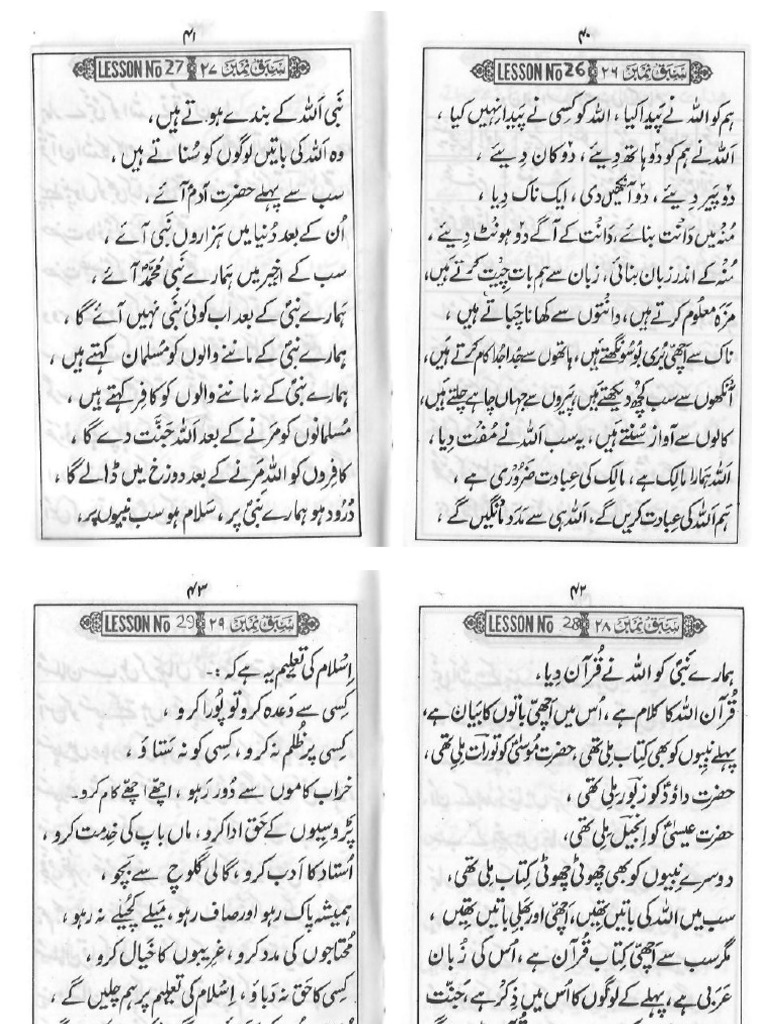 ۴۰
LESSON No 26 سبق نمبر ۲۶
ہم کو اللہ نے پیدا کیا ، اللہ کو کسی نے پیدا نہیں کیا ،
اللہ نے ہم کو دو ہاتھ دیئے ، دو کان دیئے ،
دو پیر دیئے ، دو آنکھیں دی ، ایک ناک دیا ،
منہ میں دانت بنائے ، دانت کے آگے دو ہونٹ دیئے ،
منہ کے اندر زبان بنائی ، زبان سے ہم بات چیت کرتے ہیں،
مزہ معلوم کرتے ہیں ، دانتوں سے کھانا چباتے ہیں ،
ناک سے اچھی بُری بُو سونگھتے ہیں ، ہاتھوں سے جدا جدا کام کرتے ہیں،
آنکھوں سے سب کچھ دیکھتے ہیں، پیروں سے جہاں چاہے چلتے ہیں،
کانوں سے آواز سُنتے ہیں ، یہ سب اللہ نے مُفت دِیا ،
اللہ ہمارا مالک ہے ، مالک کی عبادت ضروری ہے ،
ہم اللہ کی عبادت کریں گے ، اللہ ہی سے مدد مانگیں گے ،
۴۱
LESSON No 27 سبق نمبر ۲۷
نبی اللہ کے بندے ہوتے ہیں ،
وہ اللہ کی باتیں لوگوں کو سُناتے ہیں ،
سب سے پہلے حضرت آدمؑ آئے ،
اُن کے بعد دُنیا میں ہزاروں نبی آئے ،
سب کے اخیر میں ہمارے نبی محمدؐ آئے ،
ہمارے نبیؐ کے بعد اب کوئی نبی نہیں آئے گا ،
ہمارے نبیؐ کے ماننے والوں کو مُسلمان کہتے ہیں ،
ہمارے نبیؐ کے نہ ماننے والوں کو کافر کہتے ہیں ،
مسلمانوں کو مرنے کے بعد اللہ جنّت دے گا ،
کافروں کو اللہ مرنے کے بعد دوزخ میں ڈالے گا ،
دُرود ہو ہمارے نبیؐ پر ، سلام ہو سب نبیوں پر ،
۴۲
LESSON No 28 سبق نمبر ۲۸
ہمارے نبیؐ کو اللہ نے قُرآن دِیا ،
قُرآن اللہ کا کلام ہے ، اُس میں اچھی باتوں کا بیان ہے ،
پہلے نبیوں کو بھی کتاب ملی تھی ، حضرت موسیٰؑ کو تورات ملی تھی ،
حضرت داؤدؑ کو زبور ملی تھی ،
حضرت عیسیٰؑ کو انجیل ملی تھی ،
دوسرے نبیوں کو بھی چھوٹی چھوٹی کتاب ملی تھی ،
سب میں اللہ کی باتیں تھیں ، اچھی اور بھلی باتیں تھیں ،
مگر سب سے اچھی کتاب قُرآن ہے ، اُس کی زُبان
عربی ہے ، پہلے کے لوگوں کا اُس میں ذِکر ہے ، جنّت
۴۳
LESSON No 29 سبق نمبر ۲۹
اِسلام کی تعلیم یہ ہے کہ :-
کِسی سے وَعدہ کرو تو پُورا کرو ،
کِسی پر ظُلم نہ کرو ، کِسی کو نہ ستاؤ ،
خراب کاموں سے دُور رہو ، اچھے اچھے کام کرو۔
پڑوسیوں کے حق ادا کرو ، ماں باپ کی خِدمت کرو ،
اُستاد کا اَدب کرو ، گالی گلوچ سے بچو ،
ہمیشہ پاک رہو اور صاف رہو ، میلے کچیلے نہ رہو ،
مُحتاجوں کی مدد کرو ، غریبوں کا خیال کرو ،
کِسی کا حق نہ دباؤ ، اِسلام کی تعلیم پر ہم چلیں گے ،